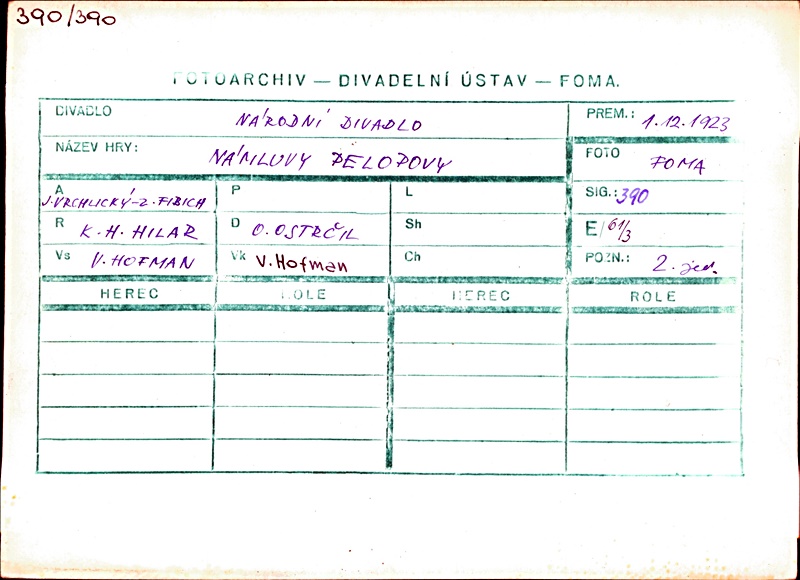 390/390
FOTOARCHIV — DIVADELNÍ ÚSTAV — FOMA.
DIVADLO NÁRODNÍ DIVADLO PREM.: 1.12.1923
NÁZEV HRY: NÁMLUVY PELOPOVY FOTO FOMA
A J.VRCHLICKÝ-Z.FIBICH P L SIG.: 390
R K.H. HILAR D O.OSTRČIL Sh E/61/3
Vs V.HOFMAN Vk V.Hofman Ch POZN.: 2. jed.
HEREC ROLE HEREC ROLE